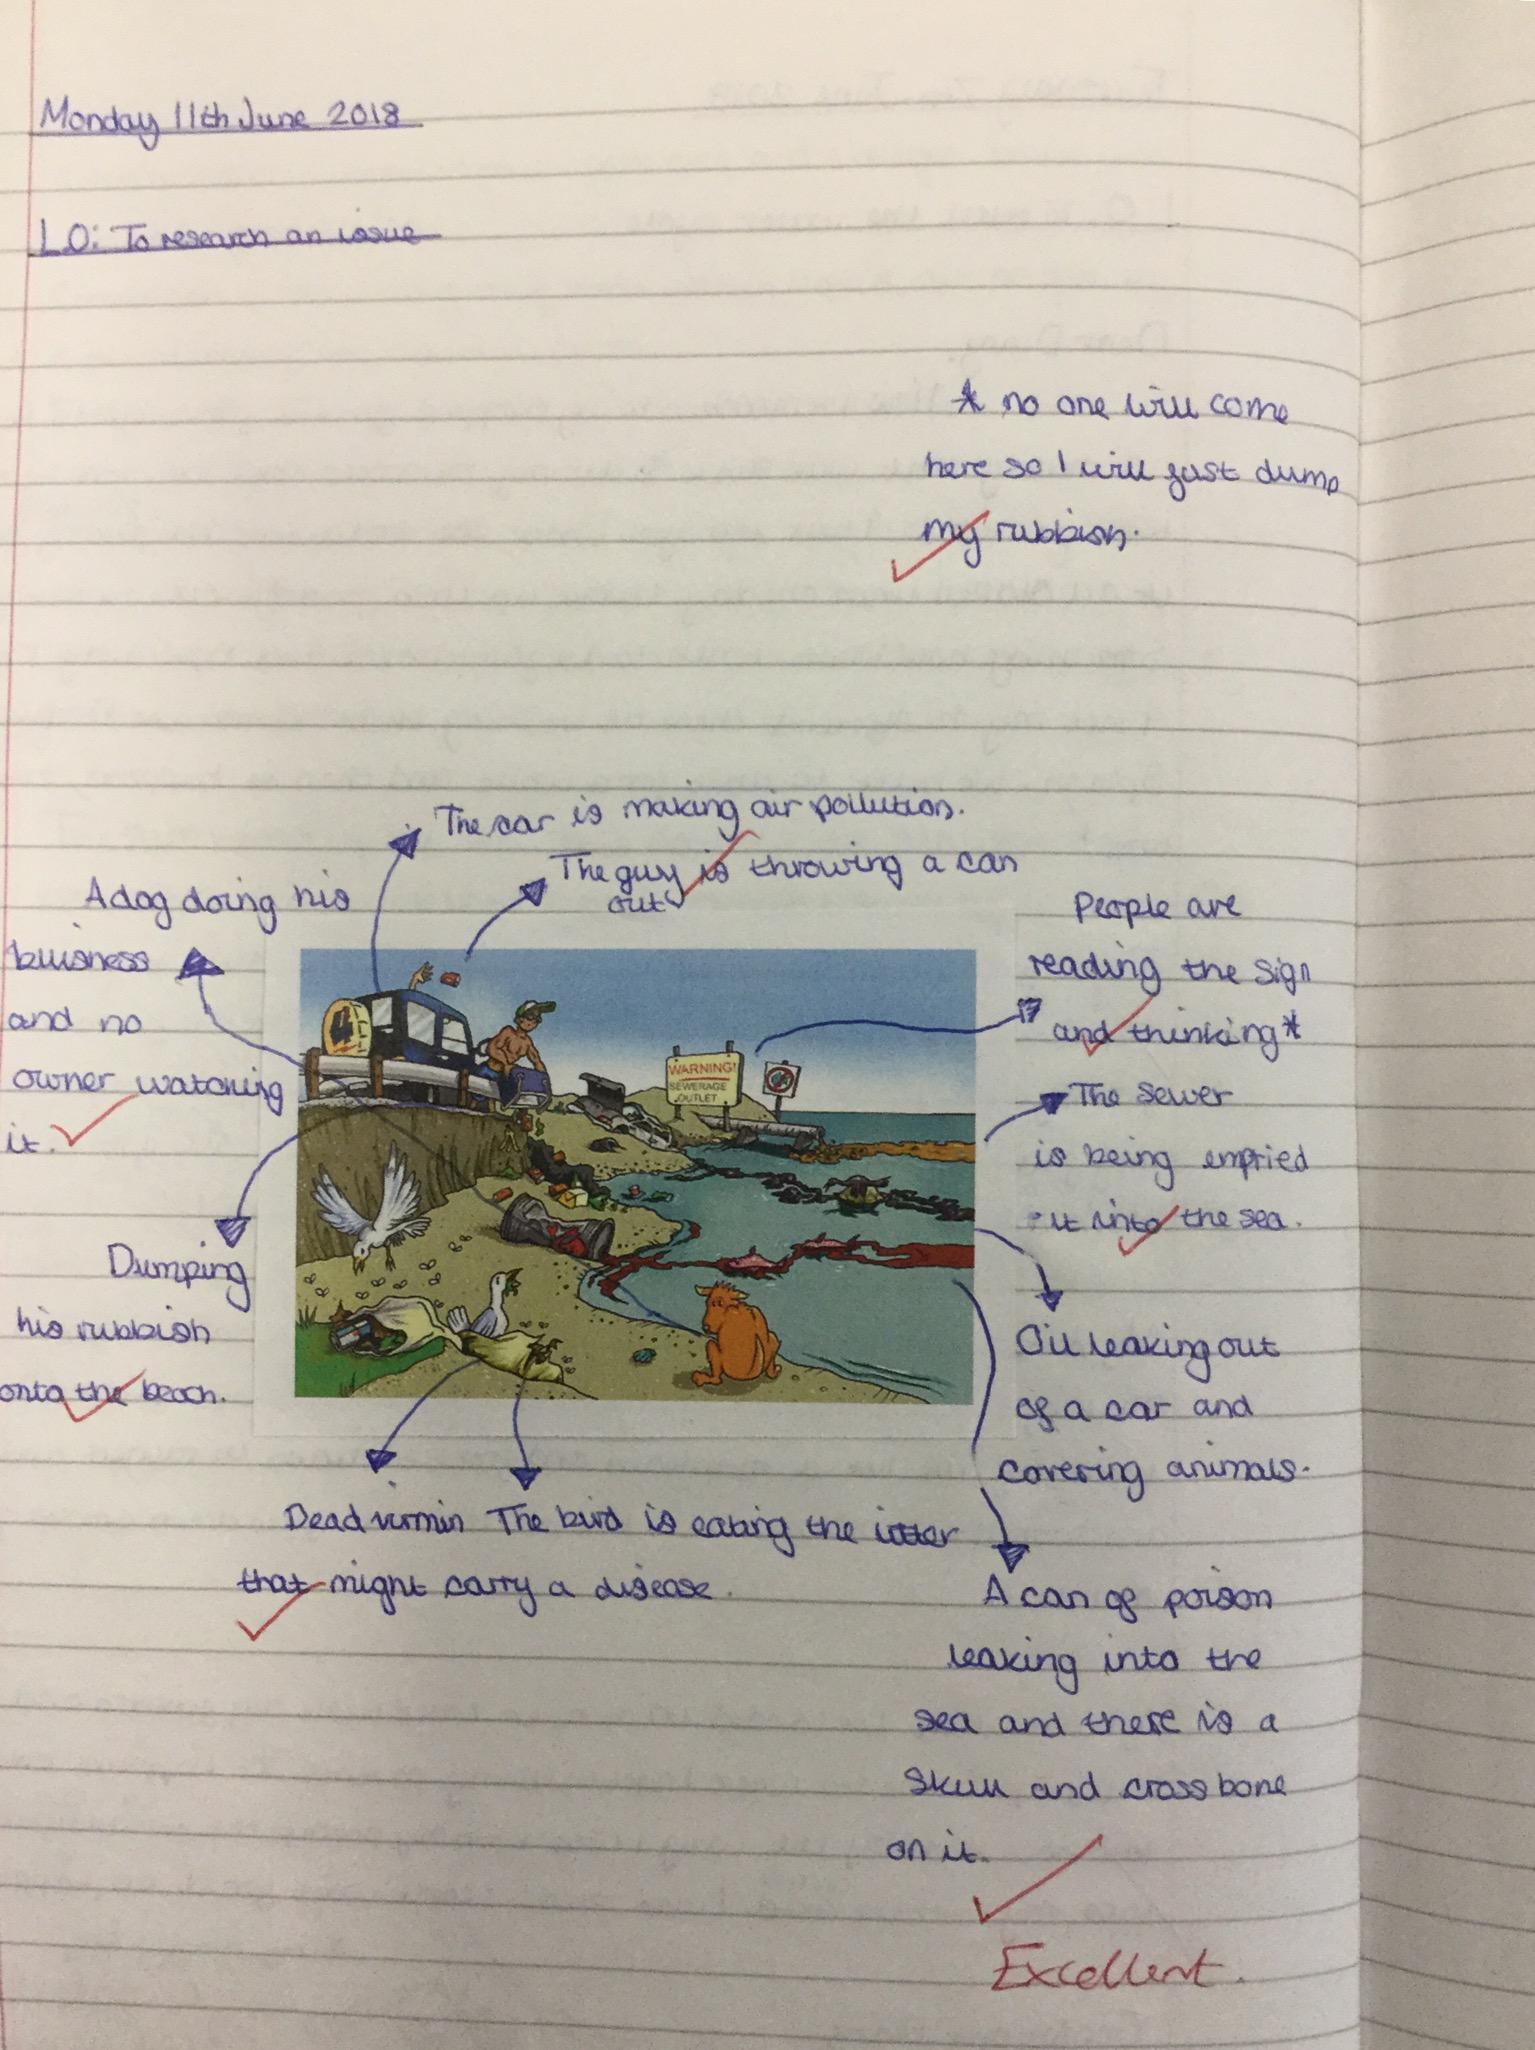 Monday 11th June 2018
LO: To research an issue
* no one will come
here so I will just dump
my rubbish.
The car is making air pollution.
The guy is throwing a can
out
A dog doing his
buisness
and no
owner watching
it.
People are
reading the sign
and thinking*
The sewer
is being emptied
it into the sea.
4
WARNING!
SEWERAGE
OUTLET
Dumping
his rubbish
onto the beach.
Oil leaking out
of a car and
covering animals.
Dead virmin The bird is eating the litter
that might carry a disease.
A can of poison
leaking into the
sea and there is a
skull and crossbone
on it.
Excellent.